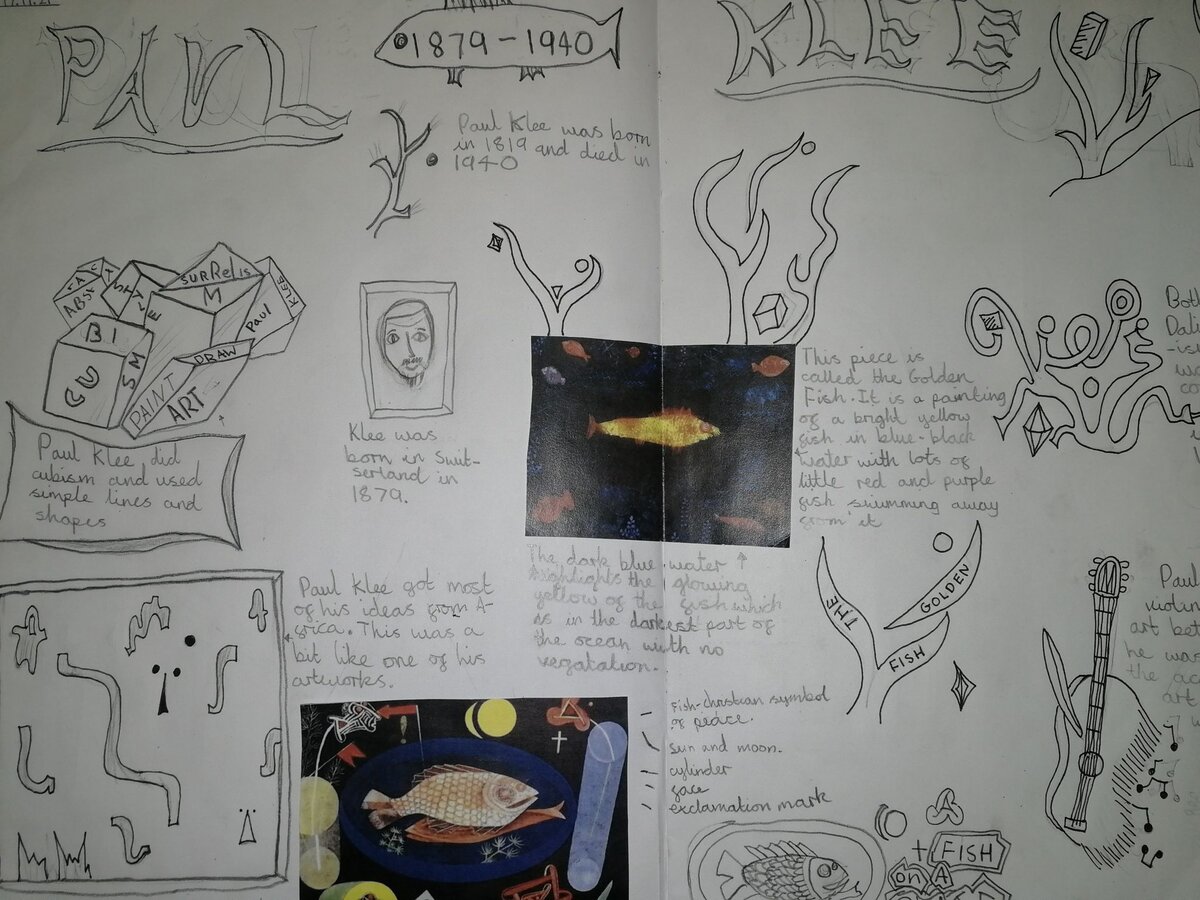 PAUL
1879-1940
KLEE
Paul Klee was born
in 1819 and died in
1940
ABS
SURRelIS
M
Paul
KLEE
BI
SM
CU
DRAW
PAINT
ART
Paul Klee did
cubism and used
simple lines and
shapes
Klee was
born in Swit-
serland in
1879.
This piece is
called the Golden
Fish. It is a painting
of a bright yellow
fish in blue-black
water with lots of
little red and purple
fish swimming away
from it
Both
Dali
-is
wa
co
The dark blue water
highlights the glowing
yellow of the fish which
is in the darkest part of
the ocean with no
vegatation.
Paul Klee got most
of his ideas from A-
frica. This was a
bit like one of his
artworks.
THE
GOLDEN
FISH
Paul
violin
art bet
he was
the ac
art
fish-christian symbol
of peace.
sun and moon.
cylinder
face
exclamation mark
+ FISH
on A